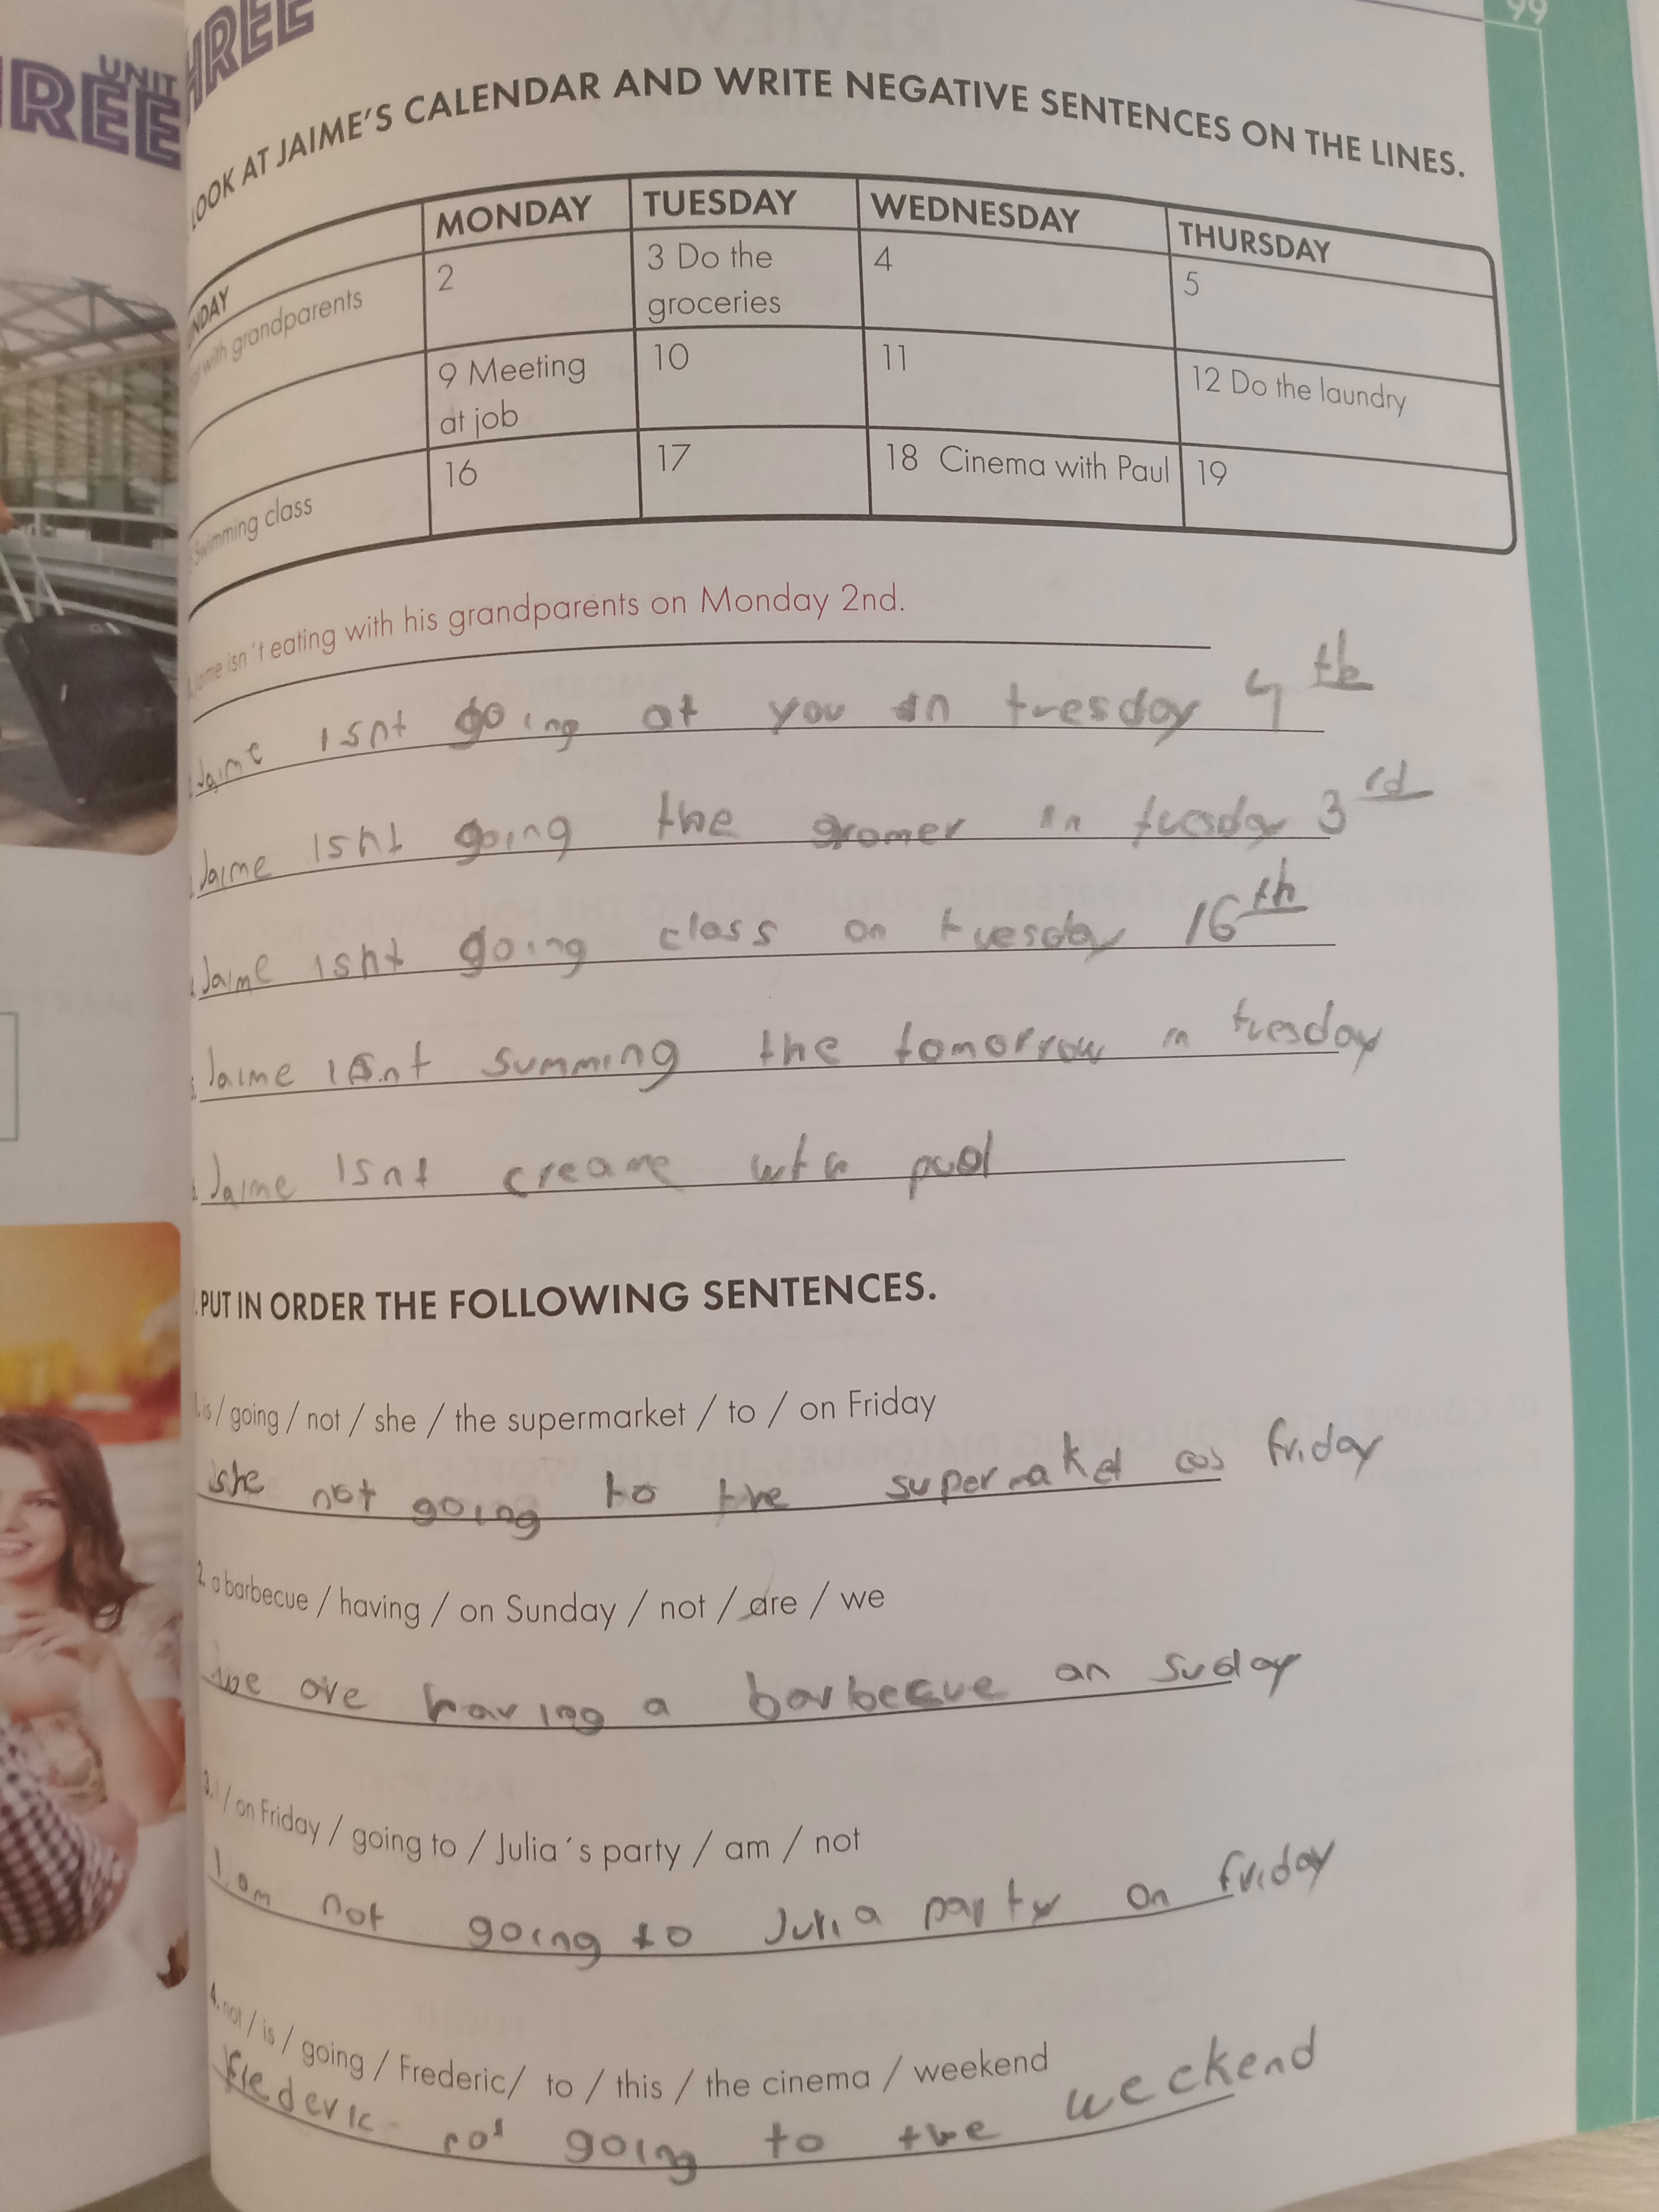 UNIT
REE
HREE
99
LOOK AT JAIME'S CALENDAR AND WRITE NEGATIVE SENTENCES ON THE LINES.
NDAY MONDAY TUESDAY WEDNESDAY THURSDAY
with grandparents 2 3 Do the groceries 4 5
9 Meeting at job 10 11 12 Do the laundry
Swimming class 16 17 18 Cinema with Paul 19
Jaime isn´t eating with his grandparents on Monday 2nd.
Jaime isnt going at you in tuesday 4th
Jaime isnt going the gromer in tuesday 3rd
Jaime isnt going class on tuesday 16th
Jaime isnt summing the tomorrow in tuesday
Jaime isnt creame
PUT IN ORDER THE FOLLOWING SENTENCES.
1. is / going / not / she / the supermarket / to / on Friday
she not going to the supermaket friday
2. a barbecue / having / on Sunday / not / are / we
we are having a barbecue an suday
3. I / on Friday / going to / Julia´s party / am / not
I am not going to Julia party on friday
4. not / is / going / Frederic/ to / this / the cinema / weekend
Frederic not going to the weekend